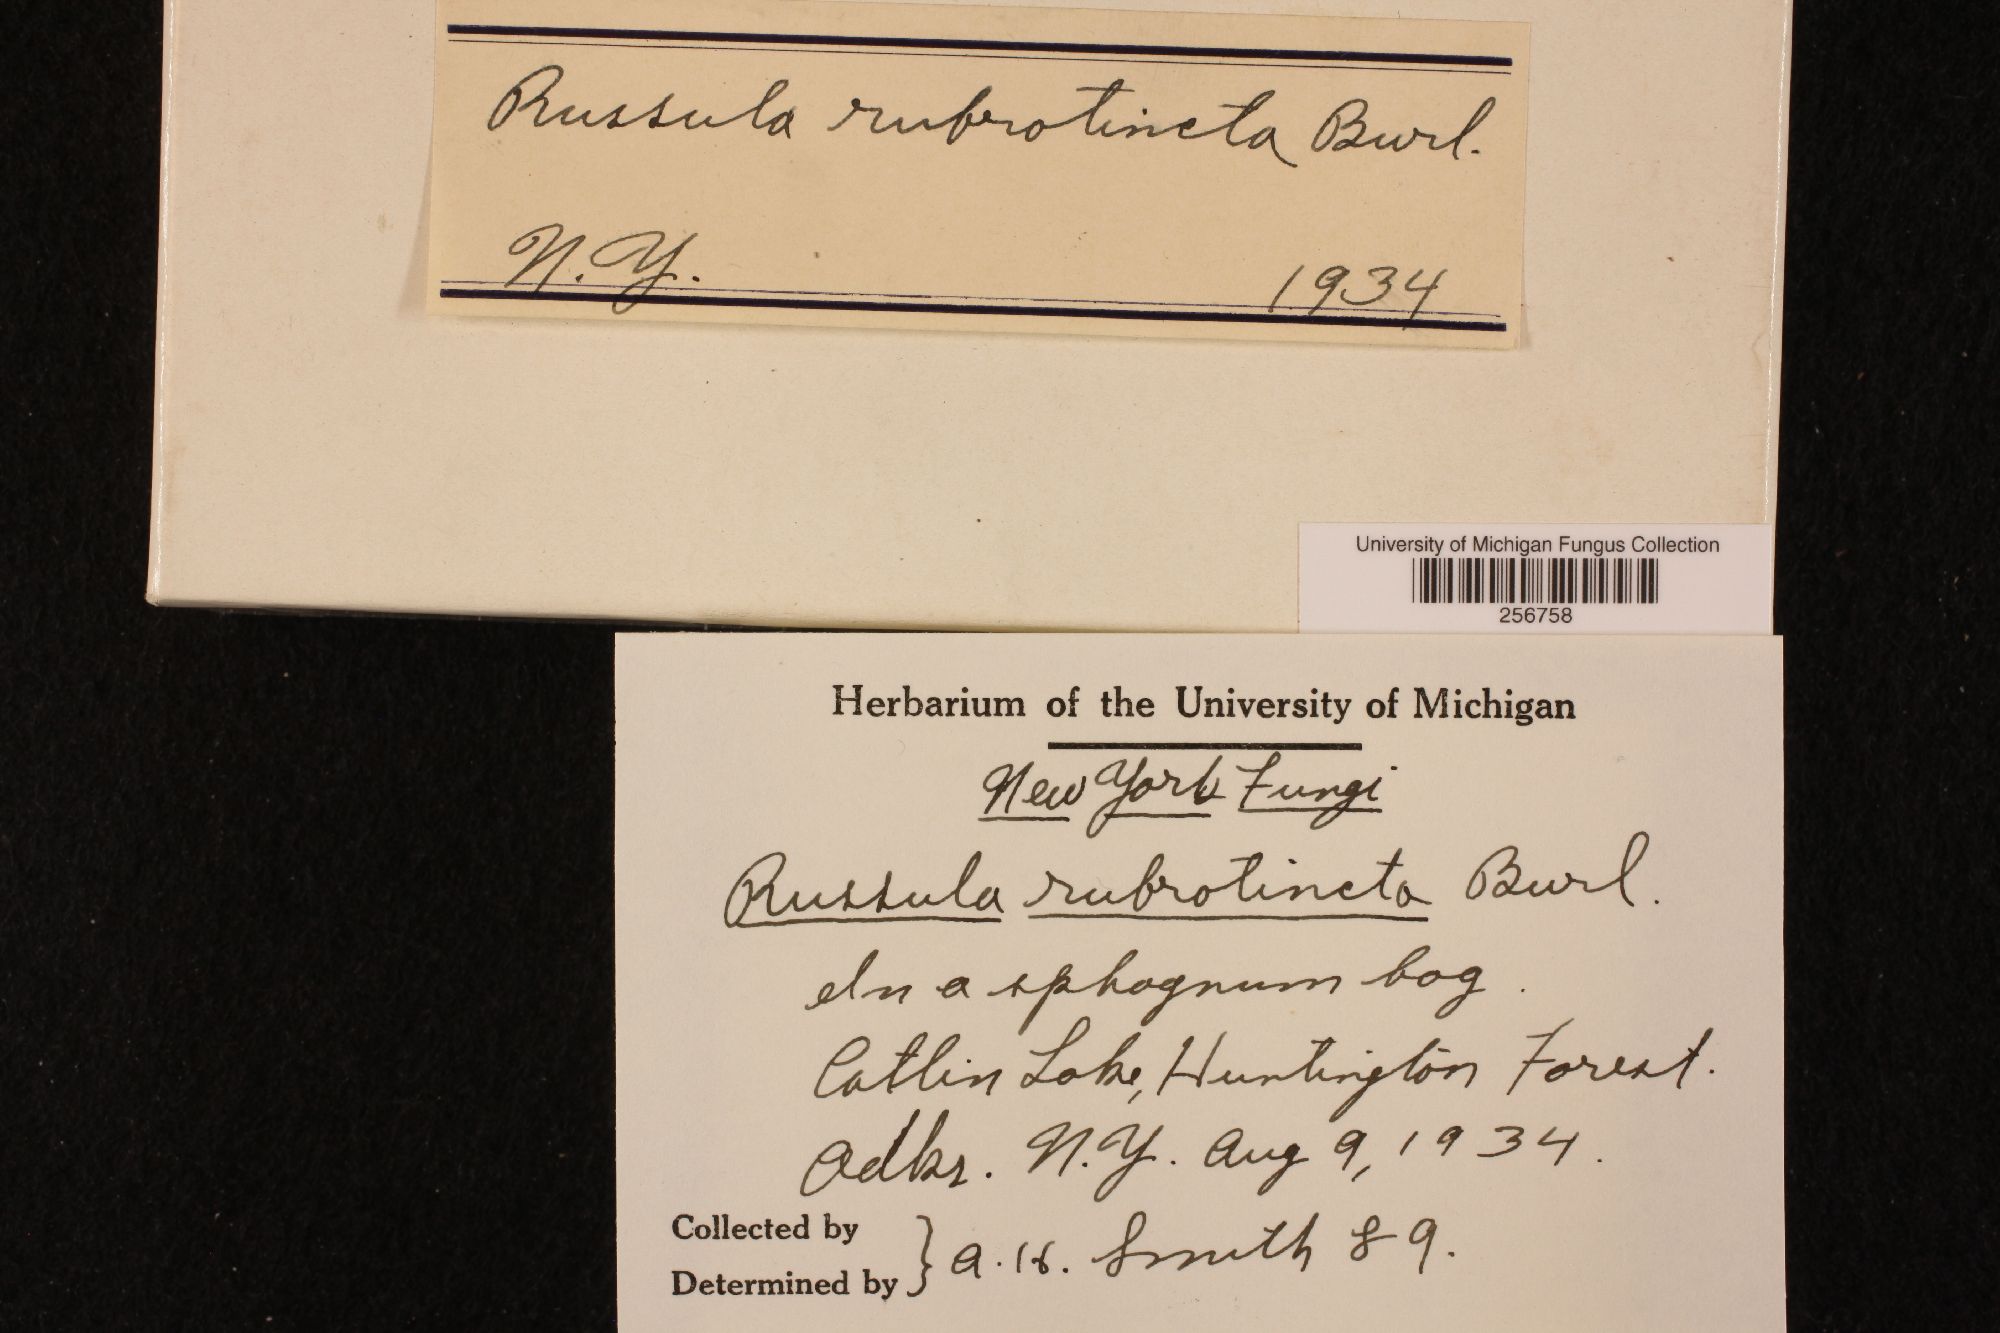 Russula rubrotincta Burl.
N.Y. 1934
University of Michigan Fungus Collection
256758
Herbarium of the University of Michigan
New York Fungi
Russula rubrotincta Burl.
In a sphagnum bog.
Catlin Lake, Huntington Forest.
Adks. N.Y. Aug 9, 1934.
Collected by
Determined by } A. H. Smith 89.